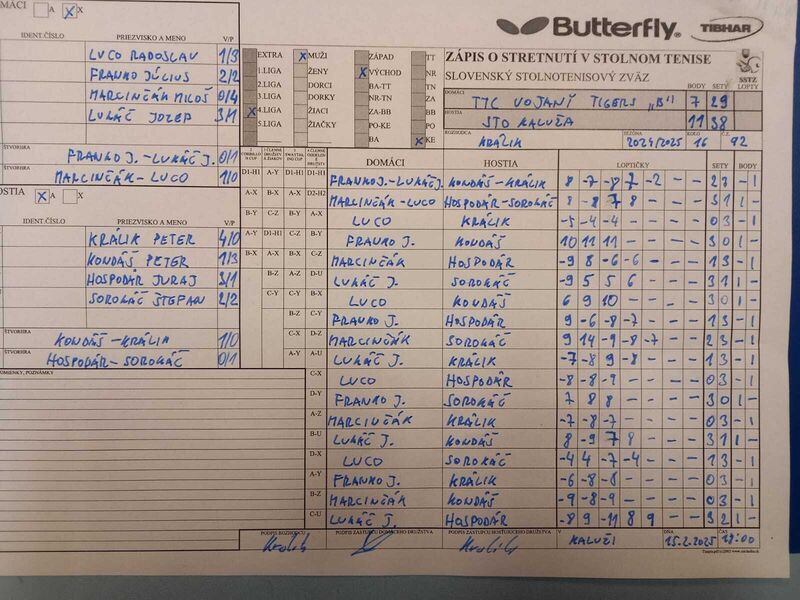 MÁCI A X
Butterfly TIBHAR
IDENT.ČÍSLO PRIEZVISKO A MENO V/P
LUCO RADOSLAV 1/3
FRANKO JÚLIUS 2/2
MARCINČÁK MILOŠ 0/4
LUKÁČ JOZEF 3/1
ŠTVORHRA
FRANKO J.-LUKÁČ J. 0/1
MARCINČÁK-LUCO 1/0
OSTIA A X
IDENT.ČÍSLO PRIEZVISKO A MENO V/P
KRÁLIK PETER 4/0
KONDÁŠ PETER 1/3
HOSPODÁR JURAJ 3/1
SOROKÁČ ŠTEFAN 2/2
ŠTVORHRA
KONDÁŠ-KRÁLIK 1/0
HOSPODÁR-SOROKÁČ 0/1
UMIENKY, POZNÁMKY
EXTRA MUŽI ZÁPAD TT
1.LIGA ŽENY VÝCHOD NR
2.LIGA DORCI BA-TT TN
3.LIGA DORKY NR-TN ZA
4.LIGA ŽIACI ZA-BB BB
5.LIGA ŽIAČKY PO-KE PO
BA KE
ZÁPIS O STRETNUTÍ V STOLNOM TENISE
SLOVENSKÝ STOLNOTENISOVÝ ZVÄZ
SSTZ
BODY SETY LOPTY
DOMÁCI TTC VOJANY TIGERS „B" 7 29
HOSTIA STO KALUŽA 11 38
ROZHODCA KRÁLIK SEZÓNA 2024/2025 KOLO 16 Č.Z. 92
DOMÁCI HOSTIA LOPTIČKY SETY BODY
D1-H1 A-Y D1-H1 D1-H1 FRANKO J.-LUKÁČ J. KONDÁŠ-KRÁLIK 8 -7 -8 7 -2 - - 2 3 - 1
A-X B-X A-X D2-H2 MARCINČÁK-LUCO HOSPODÁR-SOROKÁČ 8 -8 7 8 - - - 3 1 1 -
B-Y C-Z B-Y A-X LUCO KRÁLIK -5 -4 -4 - - - - 0 3 - 1
FRANKO J. KONDÁŠ 10 11 11 - - - - 3 0 1 -
MARCINČÁK HOSPODÁR -9 8 -6 -6 - - - 1 3 - 1
LUKÁČ J. SOROKÁČ -9 5 5 6 - - - 3 1 1 -
LUCO KONDÁŠ 6 9 10 - - - - 3 0 1 -
FRANKO J. HOSPODÁR 9 -6 -8 -7 - - - 1 3 - 1
MARCINČÁK SOROKÁČ 9 14 -9 -8 -7 - - 2 3 - 1
A-Y A-U LUKÁČ J. KRÁLIK -7 -8 9 -8 - - - 1 3 - 1
C-X LUCO HOSPODÁR -8 -8 -9 - - - - 0 3 - 1
D-Y FRANKO J. SOROKÁČ 7 8 8 - - - - 3 0 1 -
A-Z MARCINČÁK KRÁLIK -7 -8 -7 - - - - 0 3 - 1
B-U LUKÁČ J. KONDÁŠ 8 -9 7 8 - - - 3 1 1 -
D-X LUCO SOROKÁČ -4 4 -7 -4 - - - 1 3 - 1
A-Y FRANKO J. KRÁLIK -6 -8 -8 - - - - 0 3 - 1
B-Z MARCINČÁK KONDÁŠ -9 -8 -9 - - - - 0 3 - 1
C-U LUKÁČ J. HOSPODÁR -8 9 -11 8 9 - - 3 2 1 -
PODPIS ROZHODCU PODPIS ZÁSTUPCU DOMÁCEHO DRUŽSTVA PODPIS ZÁSTUPCU HOSŤUJÚCEHO DRUŽSTVA V KALUŽI DŇA 15.2.2025 18:00